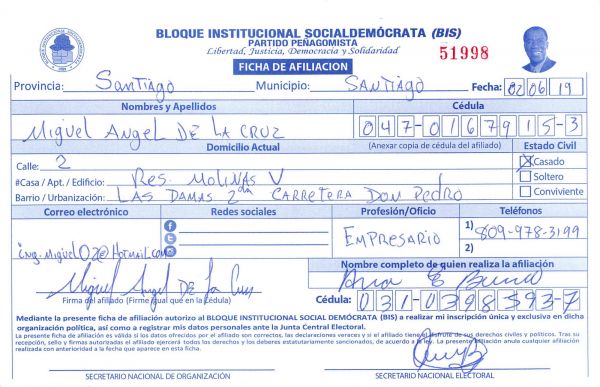 BLOQUE INSTITUCIONAL SOCIALDEMÓCRATA (BIS)
PARTIDO PEÑAGOMISTA
Libertad, Justicia, Democracia y Solidaridad
51998
FICHA DE AFILIACION
Provincia: Santiago Municipio: Santiago Fecha: 02 06 19
Nombres y Apellidos Cédula
Miguel Angel De La Cruz 047-0167915-3
Domicilio Actual (Anexar copia de cédula del afiliado) Estado Civil
Calle: 2 X Casado
#Casa / Apt. / Edificio: Res. Molinas V Soltero
Barrio / Urbanización: Las Damas 2da Carretera Don Pedro Conviviente
Correo electrónico Redes sociales Profesión/Oficio Teléfonos
ing.miguel02@Hotmail.com Empresario 1) 809-978-3199
2)
Nombre completo de quien realiza la afiliación
Miguel Angel De La Cruz
Firma del afiliado (Firma igual que en la Cédula) Cédula: 031-0398393-7
Mediante la presente ficha de afiliación autorizo al BLOQUE INSTITUCIONAL SOCIAL DEMÓCRATA (BIS) a realizar mi inscripción única y exclusiva en dicha
organización política, así como a registrar mis datos personales ante la Junta Central Electoral.
La presente ficha de afiliación es válida y si los datos ofrecidos por el afiliado son correctos, las declaraciones veraces y si el afiliado tiene el disfrute de sus derechos civiles y políticos. Tras su
recepción, sello y firmas autorizadas el afiliado ejercerá todos los derechos y los deberes estatutariamente sancionados, de acuerdo a la ley. La presente afiliación anula cualquier afiliación
realizada con anterioridad a la fecha que aparece en esta ficha.
SECRETARIO NACIONAL DE ORGANIZACIÓN SECRETARIO NACIONAL ELECTORAL